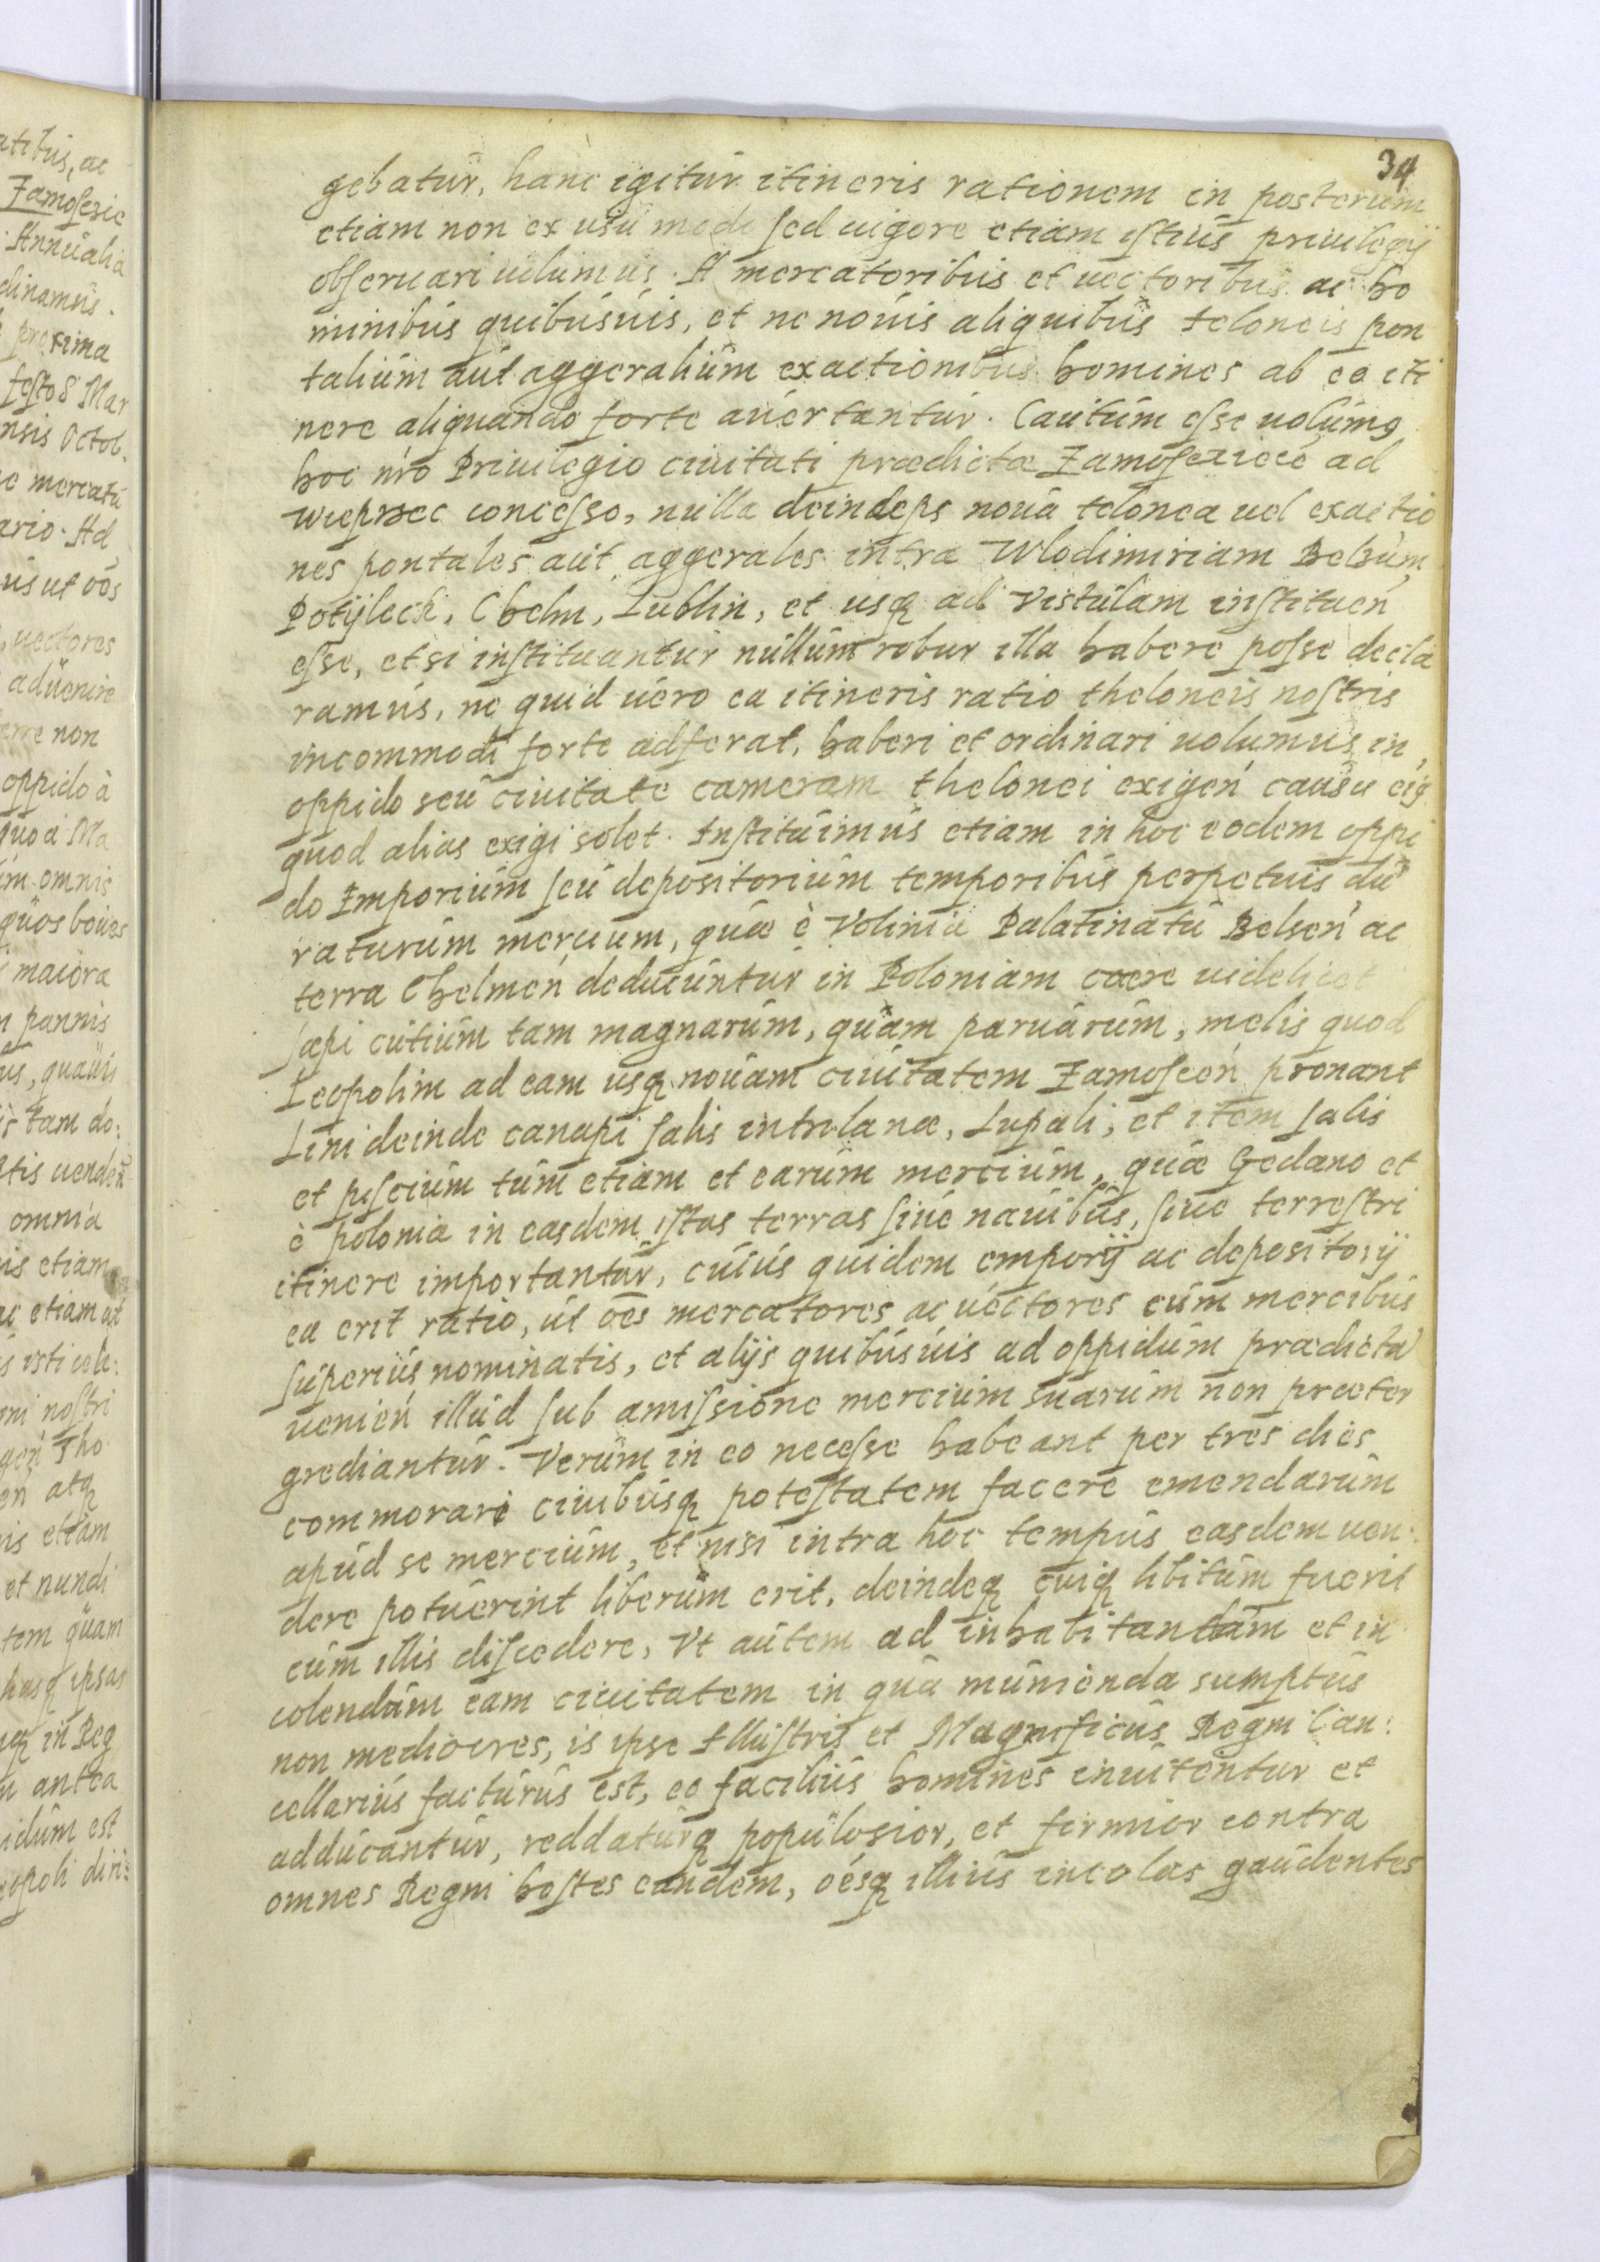 34
gebatur, hanc igitur itineris rationem in posterum
etiam non ex usu modo sed uigore etiam istius priuilegij
obseruari uolumus. A mercatoribus et uectoribus ac ho
minibus quibusuis, et ne nouis aliquibus teloneis pon
talium aut aggeralium exactionibus homines ab eo iti
nere aliquando forte auertantur. Cautum esse uolumꝯ
hoc nr̃o Priuilegio ciuitati prædictæ Zamoscziecé ad
Wieprzec concesso, nulla deindeps noua telonea uel exactio
nes pontales aut aggerales intra Wlodimiriam Belzum,
Potijlecz, Chelm, Lublin, et usqꝫ ad Vistulam instituen̄
esse, etsi instituantur nullum robur illa habere posse decla
ramus, ne quid uero ea itineris ratio theloneis nostris
incommodi forte adferat, haberi et ordinari uolumus in
oppido seu ciuitate cameram thelonei exigen̄ causa eiꝯ
quod alias exigi solet. Instituimus etiam in hoc eodem oppi
do Emporium seu depositorium temporibus perpetuis du
raturum mercium, quæ è Volinia Palatinatu Belsen̄ ac
terra Chelmen̄ deducuntur in Poloniam cæræ uidelicet
sæpi cutium tam magnarum, quàm paruarum, melis quod
Leopolim ad eam usqꝫ nouam ciuitatem Zamoscen̄ pronant
Lini deinde canapi salis intr lanæ, Lupuli, et item salis
et piscium tum etiam et earum mercium, quæ Gedano et
è polonia in easdem istas terras siue nauibus, siue terrestri
itinere importantur, cuius quidem emporij ac depositorij
ea erit ratio, ut oẽs mercatores ac uectores cum mercibus
superius nominatis, et alijs quibusuis ad oppidum prædictũ
uenien̄ illud sub amissione mercium suarum non præter
grediantur. Verum in eo necesse habeant per tres dies
commorari ciuibusqꝫ potestatem facere emendarum
apud se mercium, et nisi intra hoc tempus easdem uen:
dere potuerint liberum erit, deindeqꝫ cuiqꝫ libitum fuerit
cum illis discedere, Vt autem ad inhabitandam et in
colendam eam ciuitatem in qua munienda sumptus
non mediocres, is ipse Illustris et Magnificus Regni Can:
cellarius facturus est, eo facilius homines inuitentur et
adducantur, reddaturqꝫ populosior, et firmior contra
omnes Regni hostes eandem, oẽsqꝫ illius incolas gaudentes